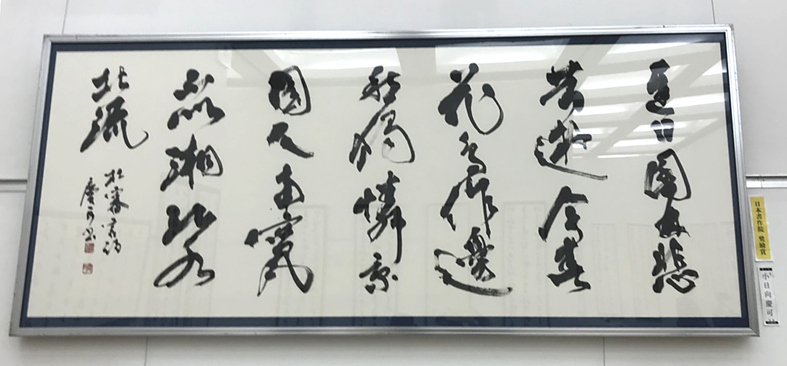 遲日園林悲
昔遊今春
花鳥作邊
愁獨憐京
國人南竄
不似湘江水
北流
杜審言詩
慶司書
日本書作院 奨励賞
小日向慶司